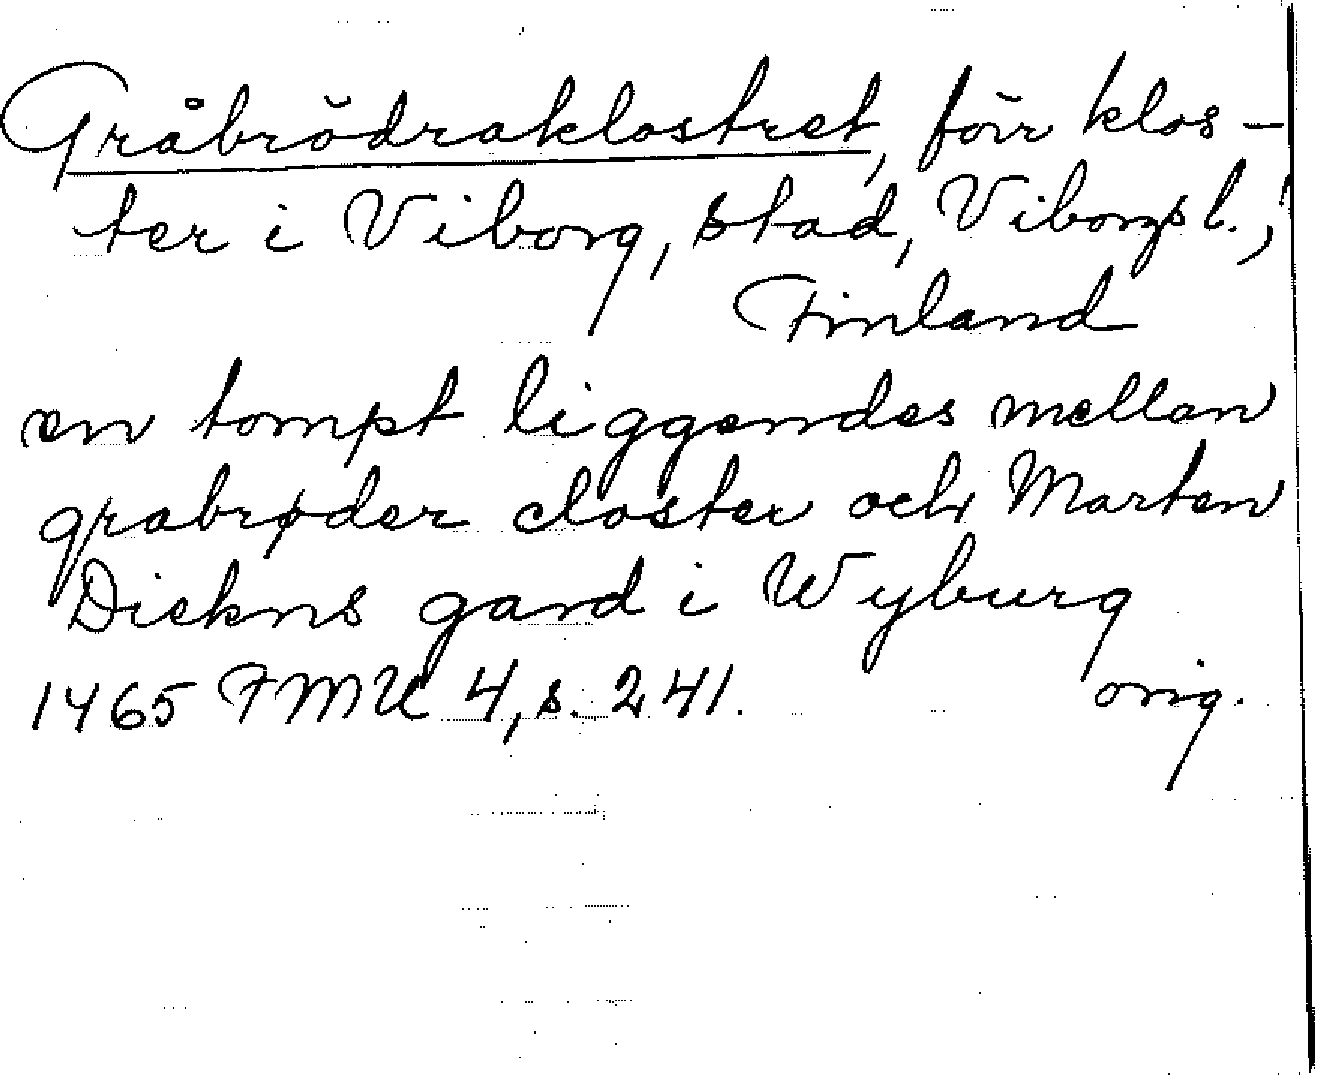 Gråbrödraklostret, förr klos-
ter i Viborg, stad, Viborgs l.,
Finland
en tompt liggendes mellan
grabrøder closter och Marten
Dickns gard i Wyburg
1465 FMU 4, s. 241. orig.